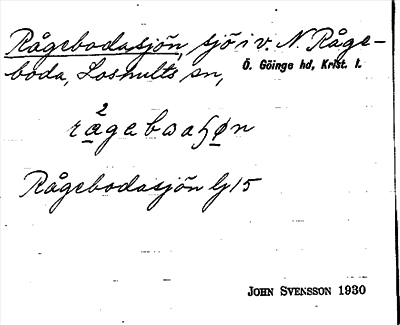 Rågebodasjön, sjö i v. N. Råge-
boda, Loshults sn, Ö. Göinge hd, Krist. l.
Rågebodasjön Lj 15
JOHN SVENSSON 1930